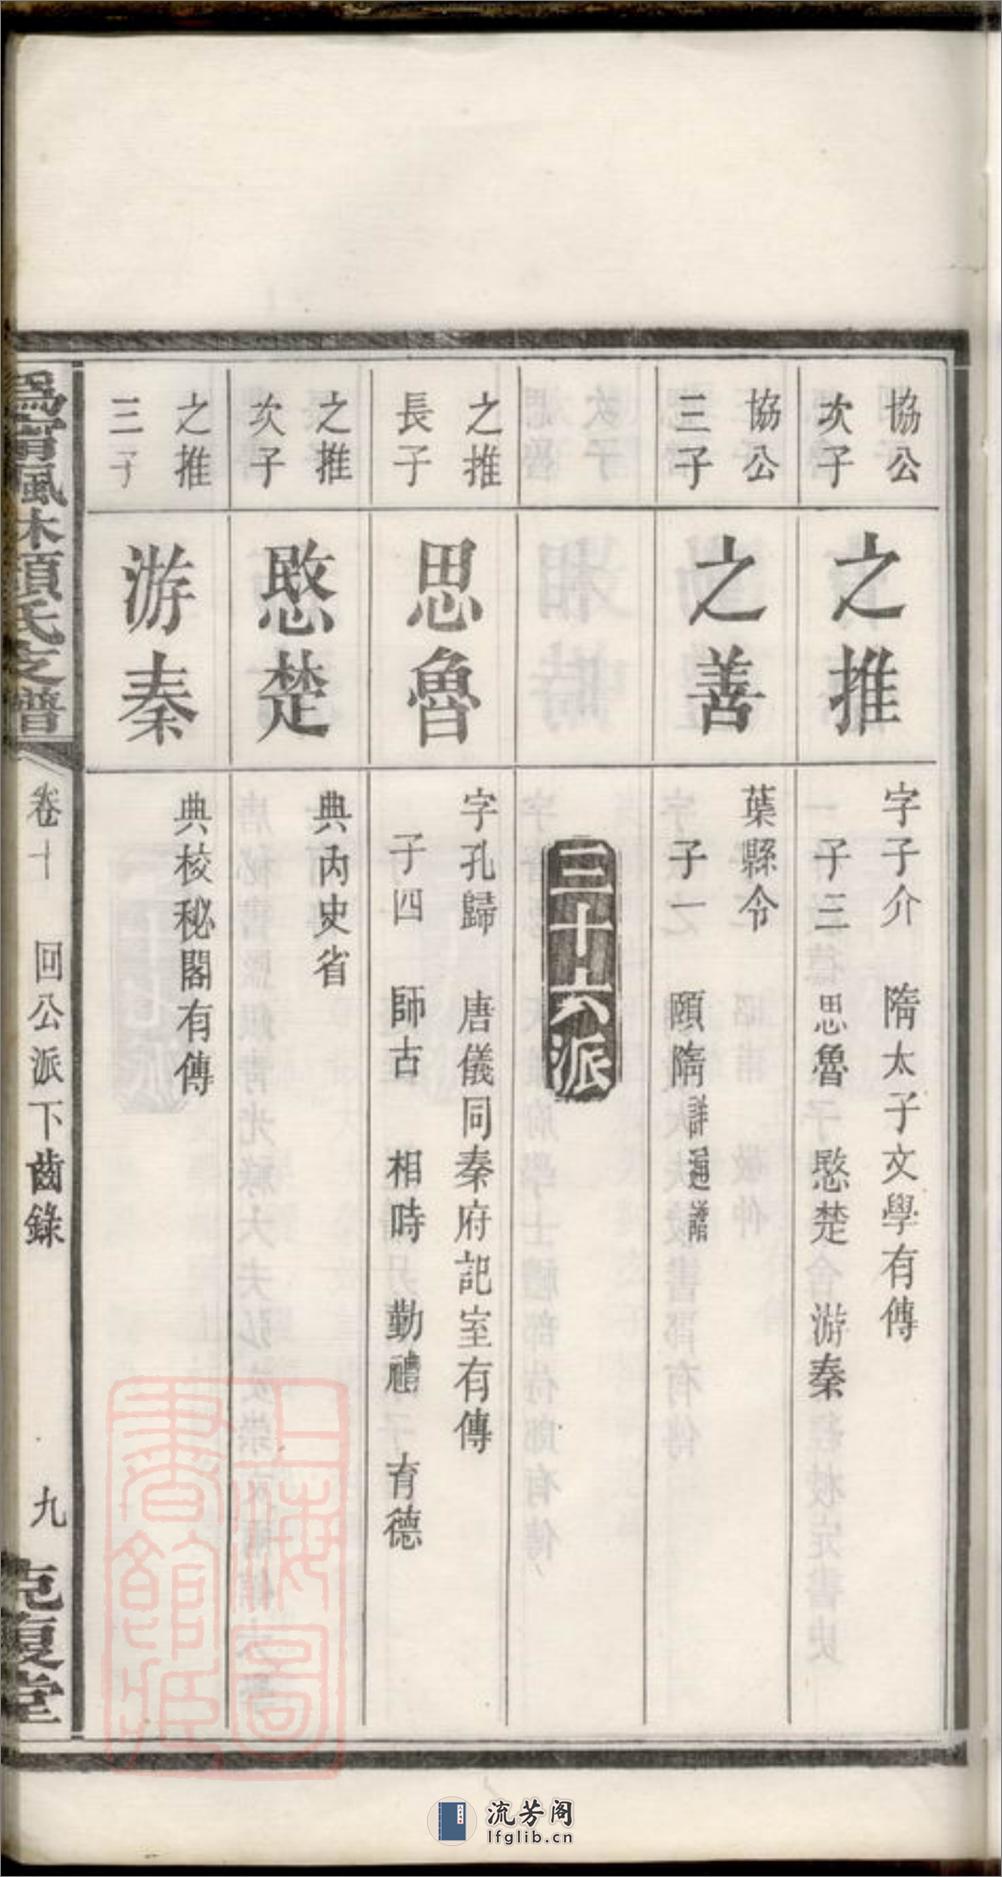 協公
次子
之推
字子介 隋太子文學有傳
子三 思魯 愍楚 游秦
協公
三子
之善
葉縣令
子一 頤隋詳通譜
三十六派
之推
長子
思魯
字孔歸 唐儀同秦府記室有傳
子四 師古 相時 勤禮 育德
之推
次子
愍楚
典內史省
之推
三子
游秦
典校秘閣有傳
卷十 回公派下齒錄 九 克復堂
上海圖書館藏
流芳阁
lfglib.cn